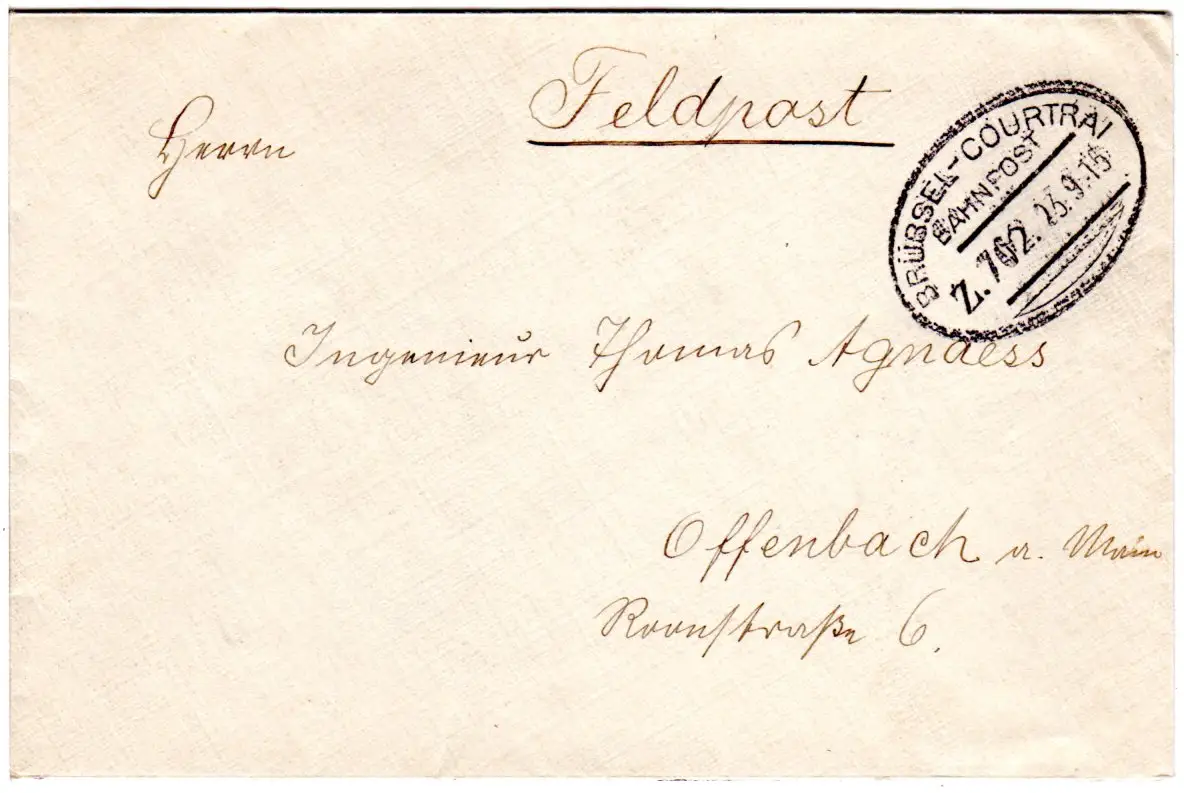 Feldpost
Herrn
BRÜBSEL-COURTRAI
BAHNPOST
Z.702. 23.9.15
Ingenieur Thomas Agnaess
Offenbach a. Main
Roonstraße 6.